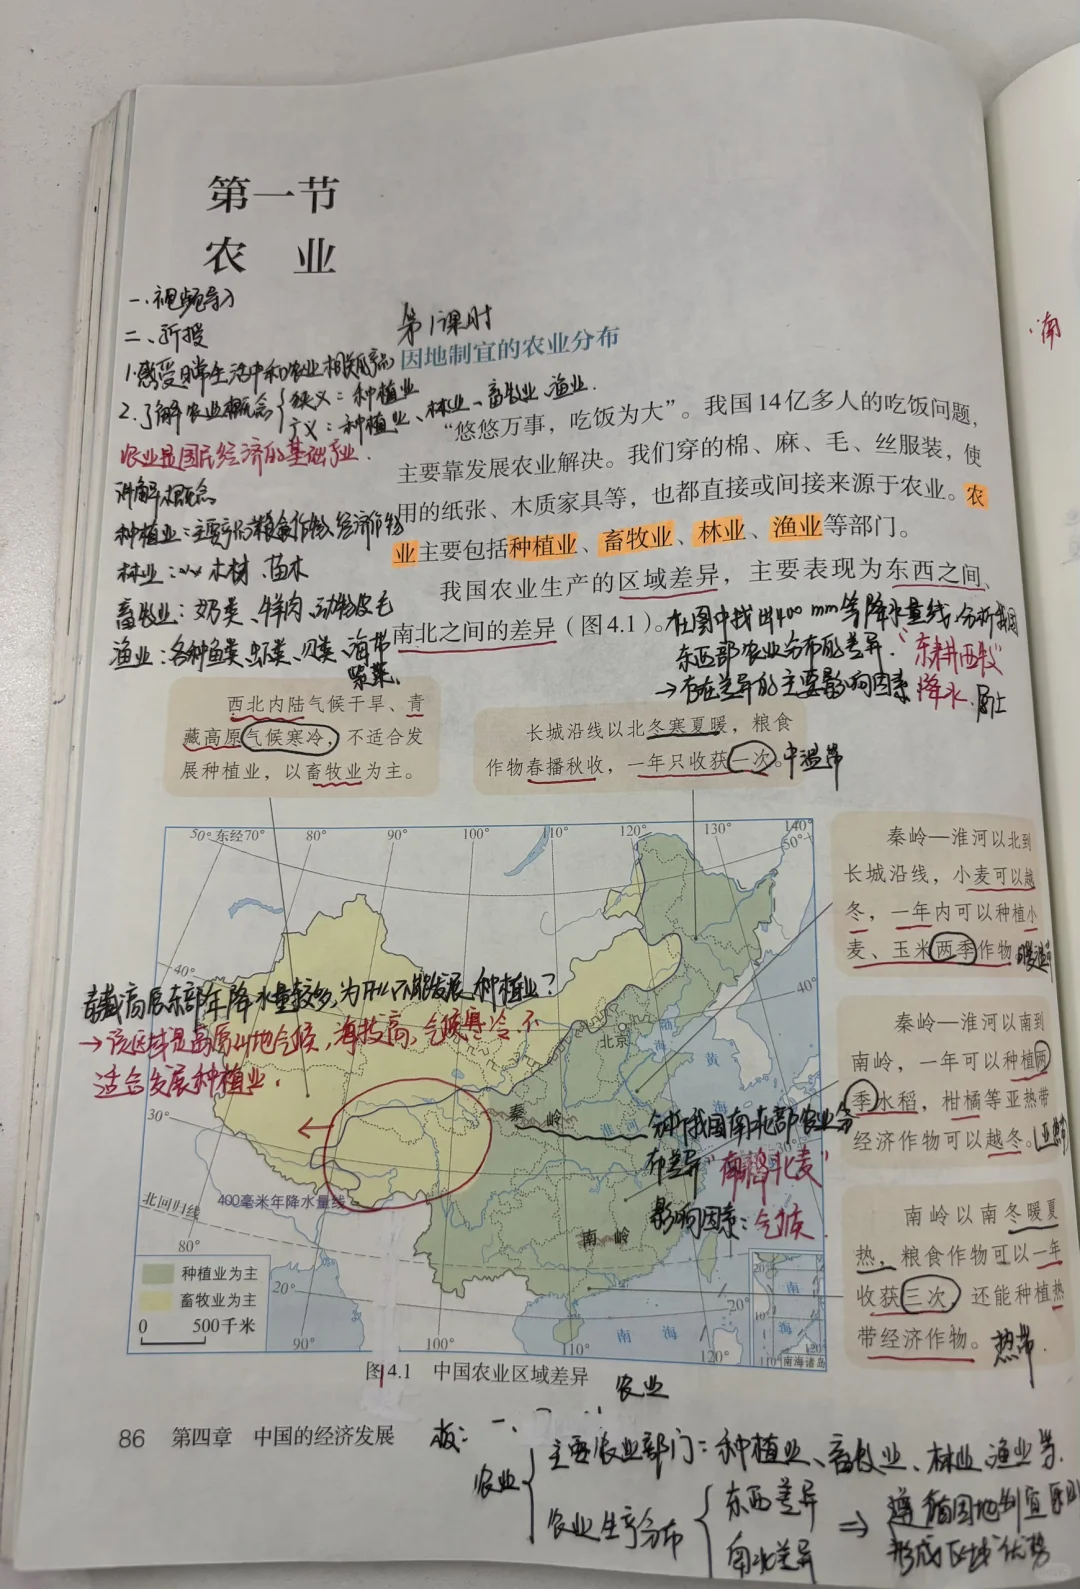 第一节
农 业
一、视频导入
二、新授
1.感受日常生活中和农业相关产品
2.了解农业概念 狭义：种植业
广义：种植业、林业、畜牧业、渔业.
农业是国民经济的基础产业.
讲解概念
种植业：主要产品粮食作物、经济作物
林业： 木材、苗木
畜牧业：奶类、牛羊肉、动物皮毛
渔业：各种鱼类、虾类、贝类、海带
紫菜、
第1课时
因地制宜的农业分布
“悠悠万事，吃饭为大”。我国14亿多人的吃饭问题，
主要靠发展农业解决。我们穿的棉、麻、毛、丝服装，使
用的纸张、木质家具等，也都直接或间接来源于农业。农
业主要包括种植业、畜牧业、林业、渔业等部门。
我国农业生产的区域差异，主要表现为东西之间、
南北之间的差异（图4.1）。
在图中找出400mm等降水量线，分析我国
东西部农业分布的差异.“东耕西牧”
→存在差异的主要影响因素 降水.
西北内陆气候干旱、青
藏高原气候寒冷，不适合发
展种植业，以畜牧业为主。
长城沿线以北冬寒夏暖，粮食
作物春播秋收，一年只收获一次。中温带
秦岭—淮河以北到
长城沿线，小麦可以越
冬，一年内可以种植小
麦、玉米两季作物 暖温带
秦岭—淮河以南到
南岭，一年可以种植两
季水稻，柑橘等亚热带
经济作物可以越冬。(亚热带
南岭以南冬暖夏
热，粮食作物可以一年
收获三次，还能种植热
带经济作物。热带.
50° 东经70° 80° 90° 100° 110° 120° 130° 140°
50°
40°
40°
30°
30°
青藏高原东部年降水量较多，为什么不能发展种植业？
→该区域是高原山地气候，海拔高，气候寒冷，不
适合发展种植业.
北京
渤
海
黄
海
秦 岭
淮 河
分析我国南北部农业分
布差异“南稻北麦”
影响因素：气候
400毫米年降水量线
北回归线
80°
南 岭
种植业为主
畜牧业为主
0 500千米
20°
90°
100°
110°
120°
20°
南 海
20°
10°
110°
120°
南
海
南海诸岛
图4.1 中国农业区域差异
86 第四章 中国的经济发展
板： 农业
农业 主要农业部门：种植业、畜牧业、林业、渔业等.
农业生产分布 东西差异
南北差异
⇒ 遵循因地制宜原则
形成区域优势
南